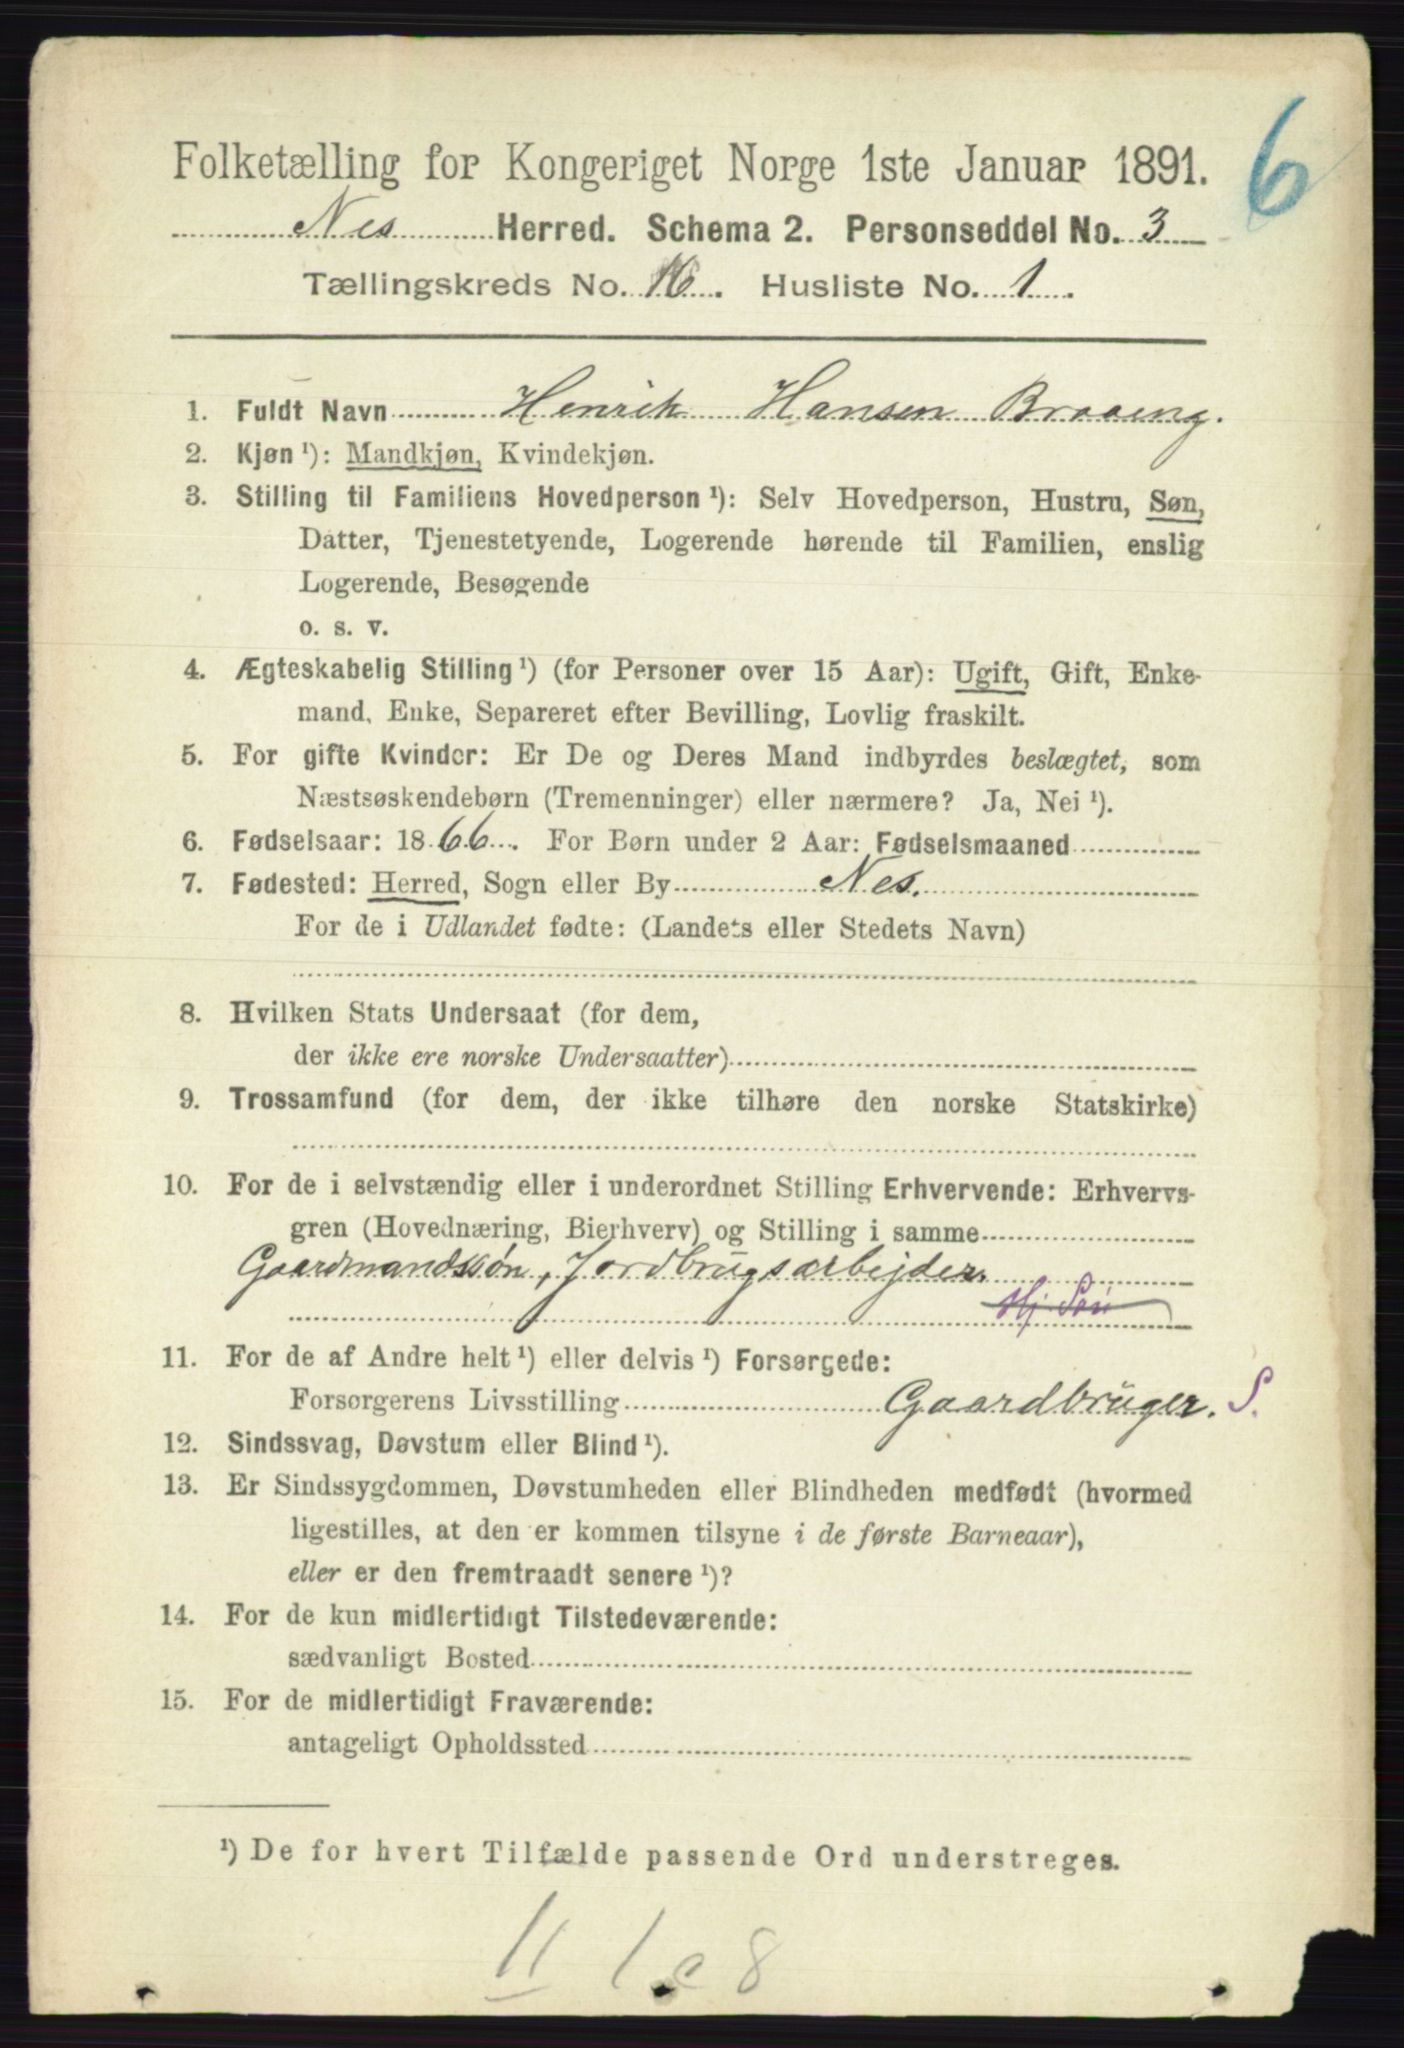 6
Folketælling for Kongeriget Norge 1ste Januar 1891.
Nes Herred. Schema 2. Personseddel No. 3
Tællingskreds No. 16. Husliste No. 1.
1. Fuldt Navn Henrik Hansen Braaeng.
2. Kjøn ¹): Mandkjøn, Kvindekjøn.
3. Stilling til Familiens Hovedperson ¹): Selv Hovedperson, Hustru, Søn,
Datter, Tjenestetyende, Logerende hørende til Familien, enslig
Logerende, Besøgende
o. s. v.
4. Ægteskabelig Stilling ¹) (for Personer over 15 Aar): Ugift, Gift, Enke-
mand, Enke, Separeret efter Bevilling, Lovlig fraskilt.
5. For gifte Kvinder: Er De og Deres Mand indbyrdes beslægtet, som
Næstsøskendebørn (Tremenninger) eller nærmere? Ja, Nei ¹).
6. Fødselsaar: 1866. For Børn under 2 Aar: Fødselsmaaned
7. Fødested: Herred, Sogn eller By Nes.
For de i Udlandet fødte: (Landets eller Stedets Navn)
8. Hvilken Stats Undersaat (for dem,
der ikke ere norske Undersaatter)
9. Trossamfund (for dem, der ikke tilhøre den norske Statskirke)
10. For de i selvstændig eller i underordnet Stilling Erhvervende: Erhvervs-
gren (Hovednæring, Bierhverv) og Stilling i samme
Gaardmandssøn, Jordbrugsarbejder.
Hj. Søn
11. For de af Andre helt ¹) eller delvis ¹) Forsørgede:
Forsørgerens Livsstilling Gaardbrüger. S.
12. Sindssvag, Døvstum eller Blind ¹).
13. Er Sindssygdommen, Døvstumheden eller Blindheden medfødt (hvormed
ligestilles, at den er kommen tilsyne i de første Barneaar),
eller er den fremtraadt senere ¹)?
14. For de kun midlertidigt Tilstedeværende:
sædvanligt Bosted
15. For de midlertidigt Fraværende:
antageligt Opholdssted
¹) De for hvert Tilfælde passende Ord understreges.